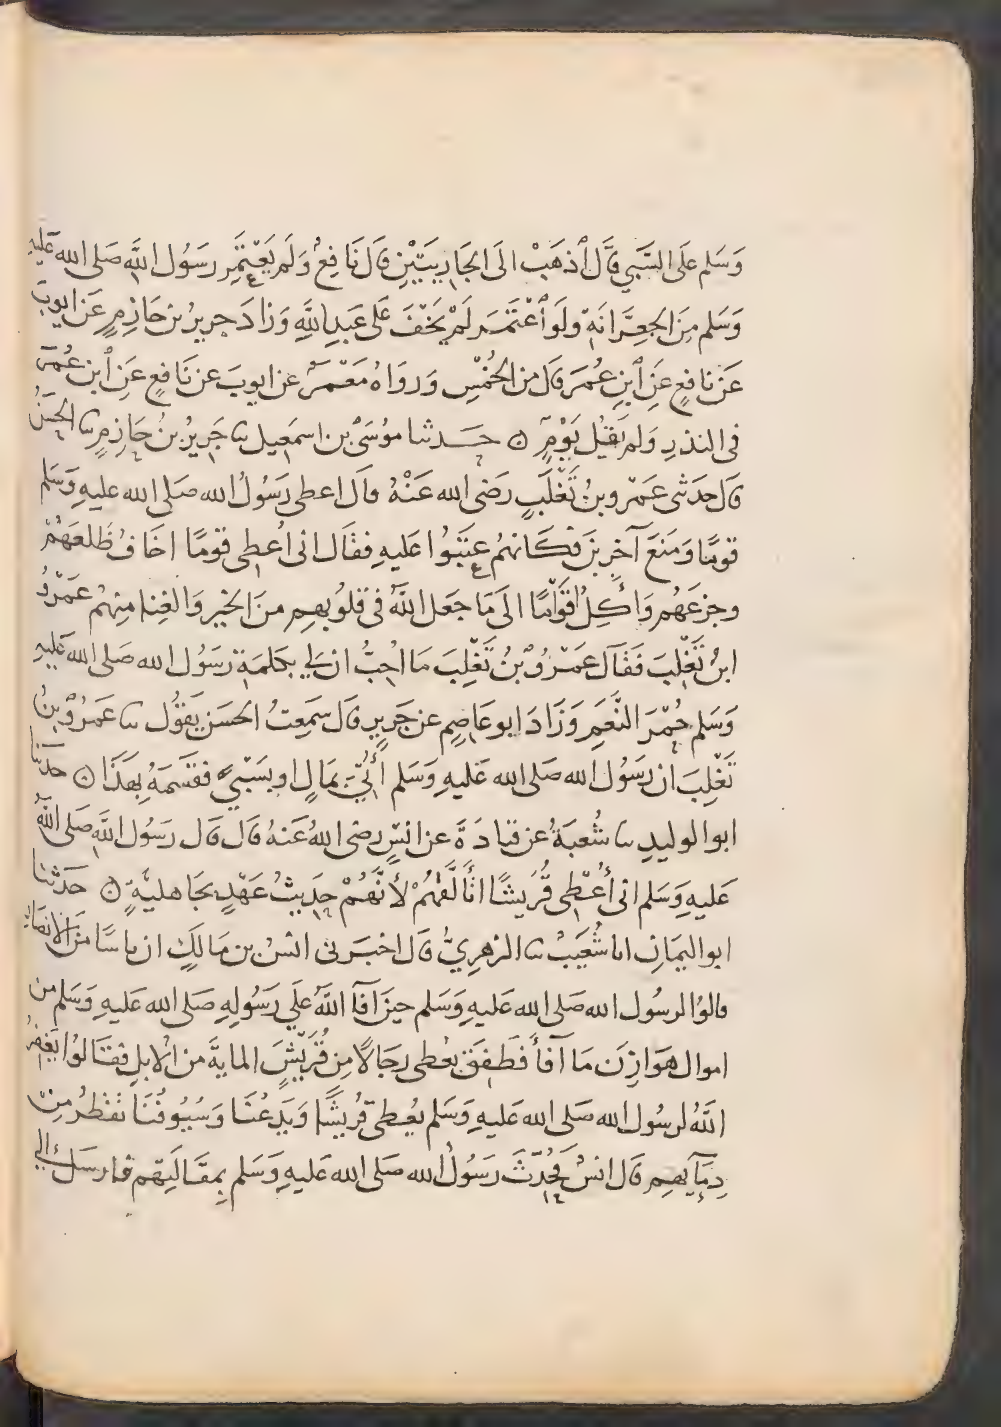 وَسَلم عَلَى السَّبي قَالَ ٱذهَبْ الى الجَارِيَتَيْنِ قَالَ نَافِعٌ وَلَم يَعْتَمِر رَسُول اللَّهِ صَلى الله عَليهِ
وَسَلم مِنَ الجعِرَّانَةِ وَلَو ٱعْتَمَرَ لَمْ يَخْفَ عَلى عَبدِ اللَّهِ وَزَادَ جرير بن حَازِمٍ عَن ايوبَ
عَن نافعٍ عَنِ ٱبنِ عُمَرَ قَالَ من الخُمْسِ وَروَاهُ مَعْمَرٌ عن ايوبَ عن نَافعٍ عَنِ ٱبن عُمَرَ
فى النذرِ وَلم يَقُل يَوْمٍ ۞ حدثنا موُسَى بن اسمَعِيل نا جَرِيرُ بنُ حَازِمٍ نا الحسَنُ
قَال حَدثنى عَمْرو بنُ تَغْلَبٍ رَضى الله عَنْهُ قالَ اعطى رَسُولُ الله صَلى الله عليهِ وَسَلم
قومًا وَمَنَعَ آخرِينَ فكَانهُم عتبُوا عَليهِ فقَال انى اُعطِى قومًا اخَافُ ظَلعَهُمْ
وجزعَهُم وَاَكِلُ اَقوَامًا الَى مَا جَعَل اللَّهُ فى قلُوبهِم منَ الخيرِ وَالغِنا مِنهُم عَمْرُو
ابنُ تَغْلِبَ فَقَالَ عَمْرُو بْنُ تَغْلِبَ مَا اُحِبُّ ان لي بكلمَةِ رَسُول الله صَلى الله عَليهِ
وَسَلم حُمْرَ النَّعَمِ وَزَادَ ابو عَاصِمٍ عن جَرِيرٍ قَالَ سَمِعتُ الحسَن يَقوُل نا عَمرُو بْنُ
تَغْلِبَ ان رَسُول الله صَلى الله عَليهِ وَسَلم اُتِيَ بمَالٍ او بسَبْيٍ فقسَمَهُ بهَذَا ۞ حدثنا
ابو الوليدِ نا شُعبَةُ عن قتادَةَ عن انسٍ رضى اللهُ عَنهُ قَال قَال رَسُول اللَّهِ صَلى اللَّهُ
عَليهِ وَسَلم انى أُعْطِى قُرَيشًا اتَأَلَّفهُمْ لأَنَّهُمْ حَدِيثُ عَهْدٍ بجَاهليَّةٍ ۞ حَدثنا
ابو اليمَانِ انا شُعَيبْ نا الزهرِىُّ قَال اخبرَنى انسُ بن مَالكٍ ان ناسًا منَ الانصَارِ
قالوُا لرسُول الله صَلى الله عَليهِ وَسَلم حينَ اَفَآ اللَّهُ عَلَى رَسُولِهِ صَلى الله عَليهِ وَسَلم من
اموال هوَازِنَ مَا آفأَ فَطَفِقَ يعُطى رجَالًا مِن قُرَيْشٍ المايةَ من الابلِ فقَالوُا يَغفِرُ
اللَّهُ لرسُول الله صَلى الله عَليهِ وَسَلم يعُطى قُريشًا وَيَدَعُنَا وَسُيُوفُنَا تَقْطُرُ مِن
دِمَآيهِم قَال انسٌ فحُدِّثَ رَسُولُ الله صَلى الله عَليهِ وَسَلم بِمقَالَتِهم فارسَل الى